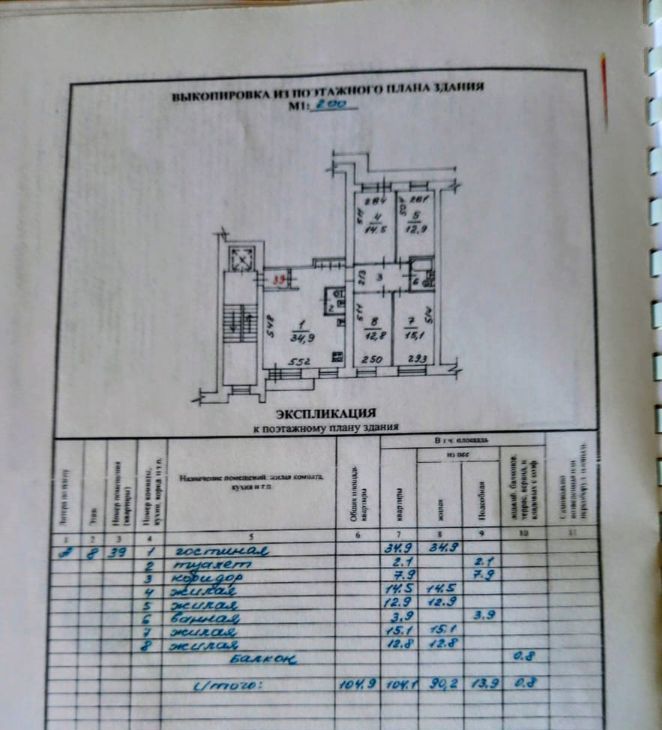 ВЫКОПИРОВКА ИЗ ПОЭТАЖНОГО ПЛАНА ЗДАНИЯ
М1: 200
284 281
511 4 14.5 504 5 12.9
39 213 3
548 1 34,9 511 8 12.8 7 15,1 514
552 250 293
ЭКСПЛИКАЦИЯ
к поэтажному плану здания
Литера по плану Этаж Номер помещения (квартиры) Номер комнаты, кухни, корид. и т.п. Назначение помещений: жилая комната, кухня и т.п. Общая площадь квартиры В т.ч. площадь
квартиры из нее жилая Подсобная
1 2 3 4 5 6 7 8 9 10 11
8 39 1 гостиная 34.9 34.9
2 туалет 2.1 2.1
3 коридор 7.9 7.9
4 жилая 14.5 14.5
5 жилая 12.9 12.9
6 ванная 3.9 3.9
7 жилая 15.1 15.1
8 жилая 12.8 12.8
балкон 0.8
Итого: 104.9 104.1 90,2 13,9 0.8